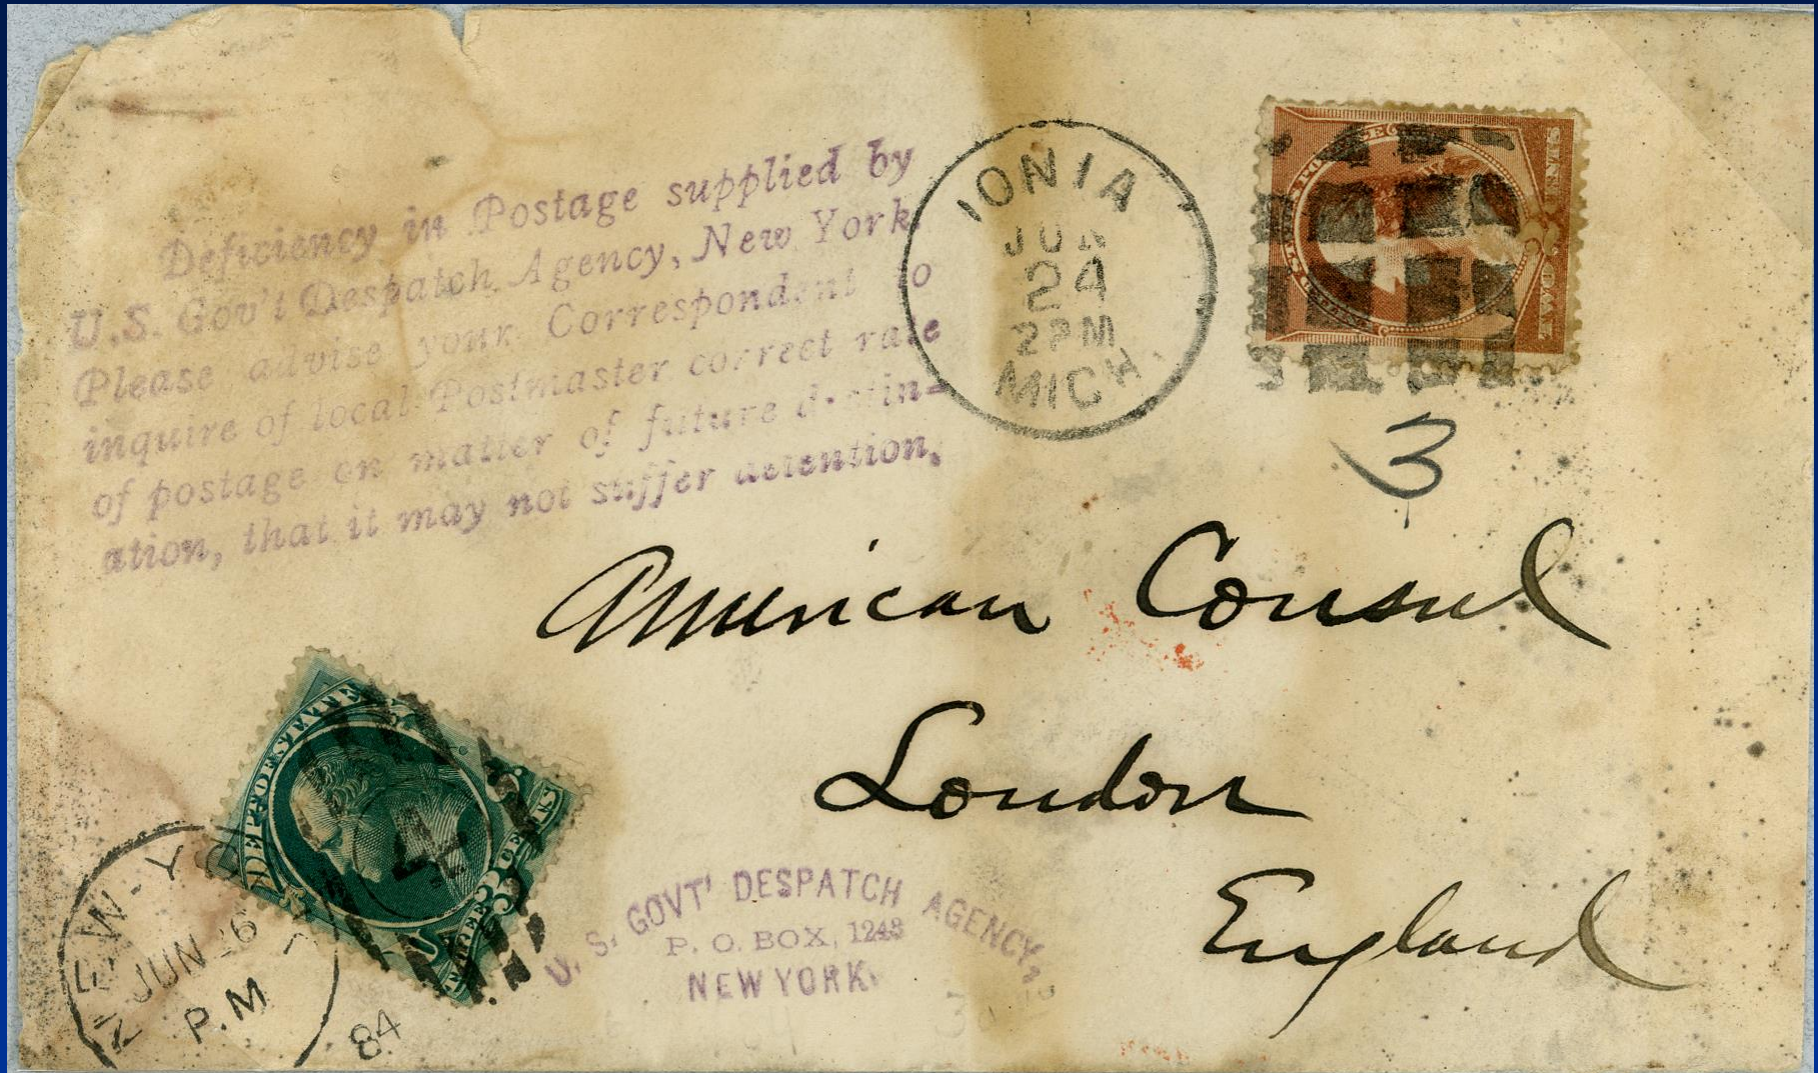 Deficiency in Postage supplied by
U.S. Gov't Despatch Agency, New York.
Please advise your Correspondent to
inquire of local Postmaster correct rate
of postage on matter of future destin=
ation, that it may not suffer detention.
IONIA
JUN
24
2PM
MICH.
3
American Consul
London
England
DEPT OF STATE
3
THREE
4
NEW-YO
JUN 26
P.M
84
U. S. GOVT' DESPATCH AGENCY,
P. O. BOX, 1248
NEW YORK.